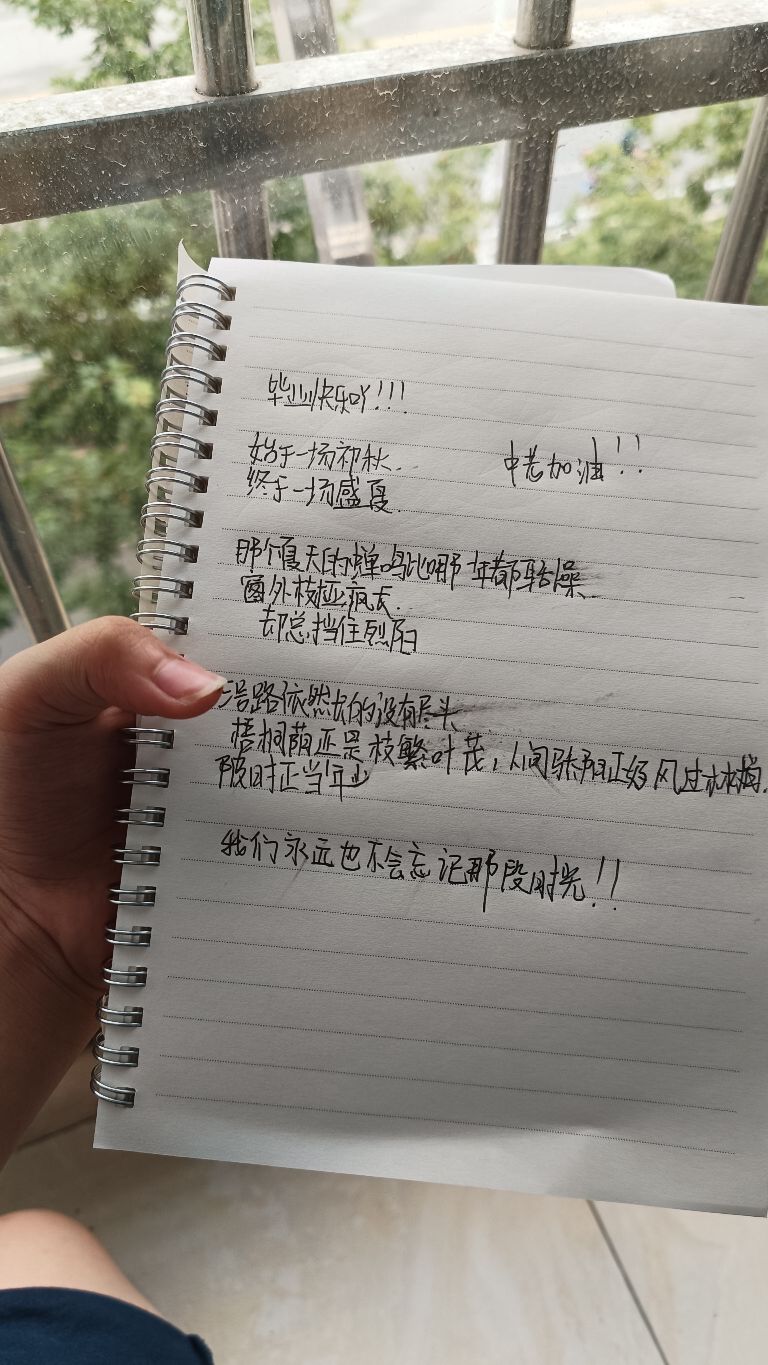 毕业快乐吖!!!
始于一场初秋.
中考加油!!
终于一场盛夏.
那个夏天的蝉鸣比哪年都聒噪、
窗外枝桠疯长.
却总挡住烈阳
路依然长的没有尽头
梧桐荫正是枝繁叶茂,人间骄阳正好风过林梢.
彼时正当年少
我们永远也不会忘记那段时光!!